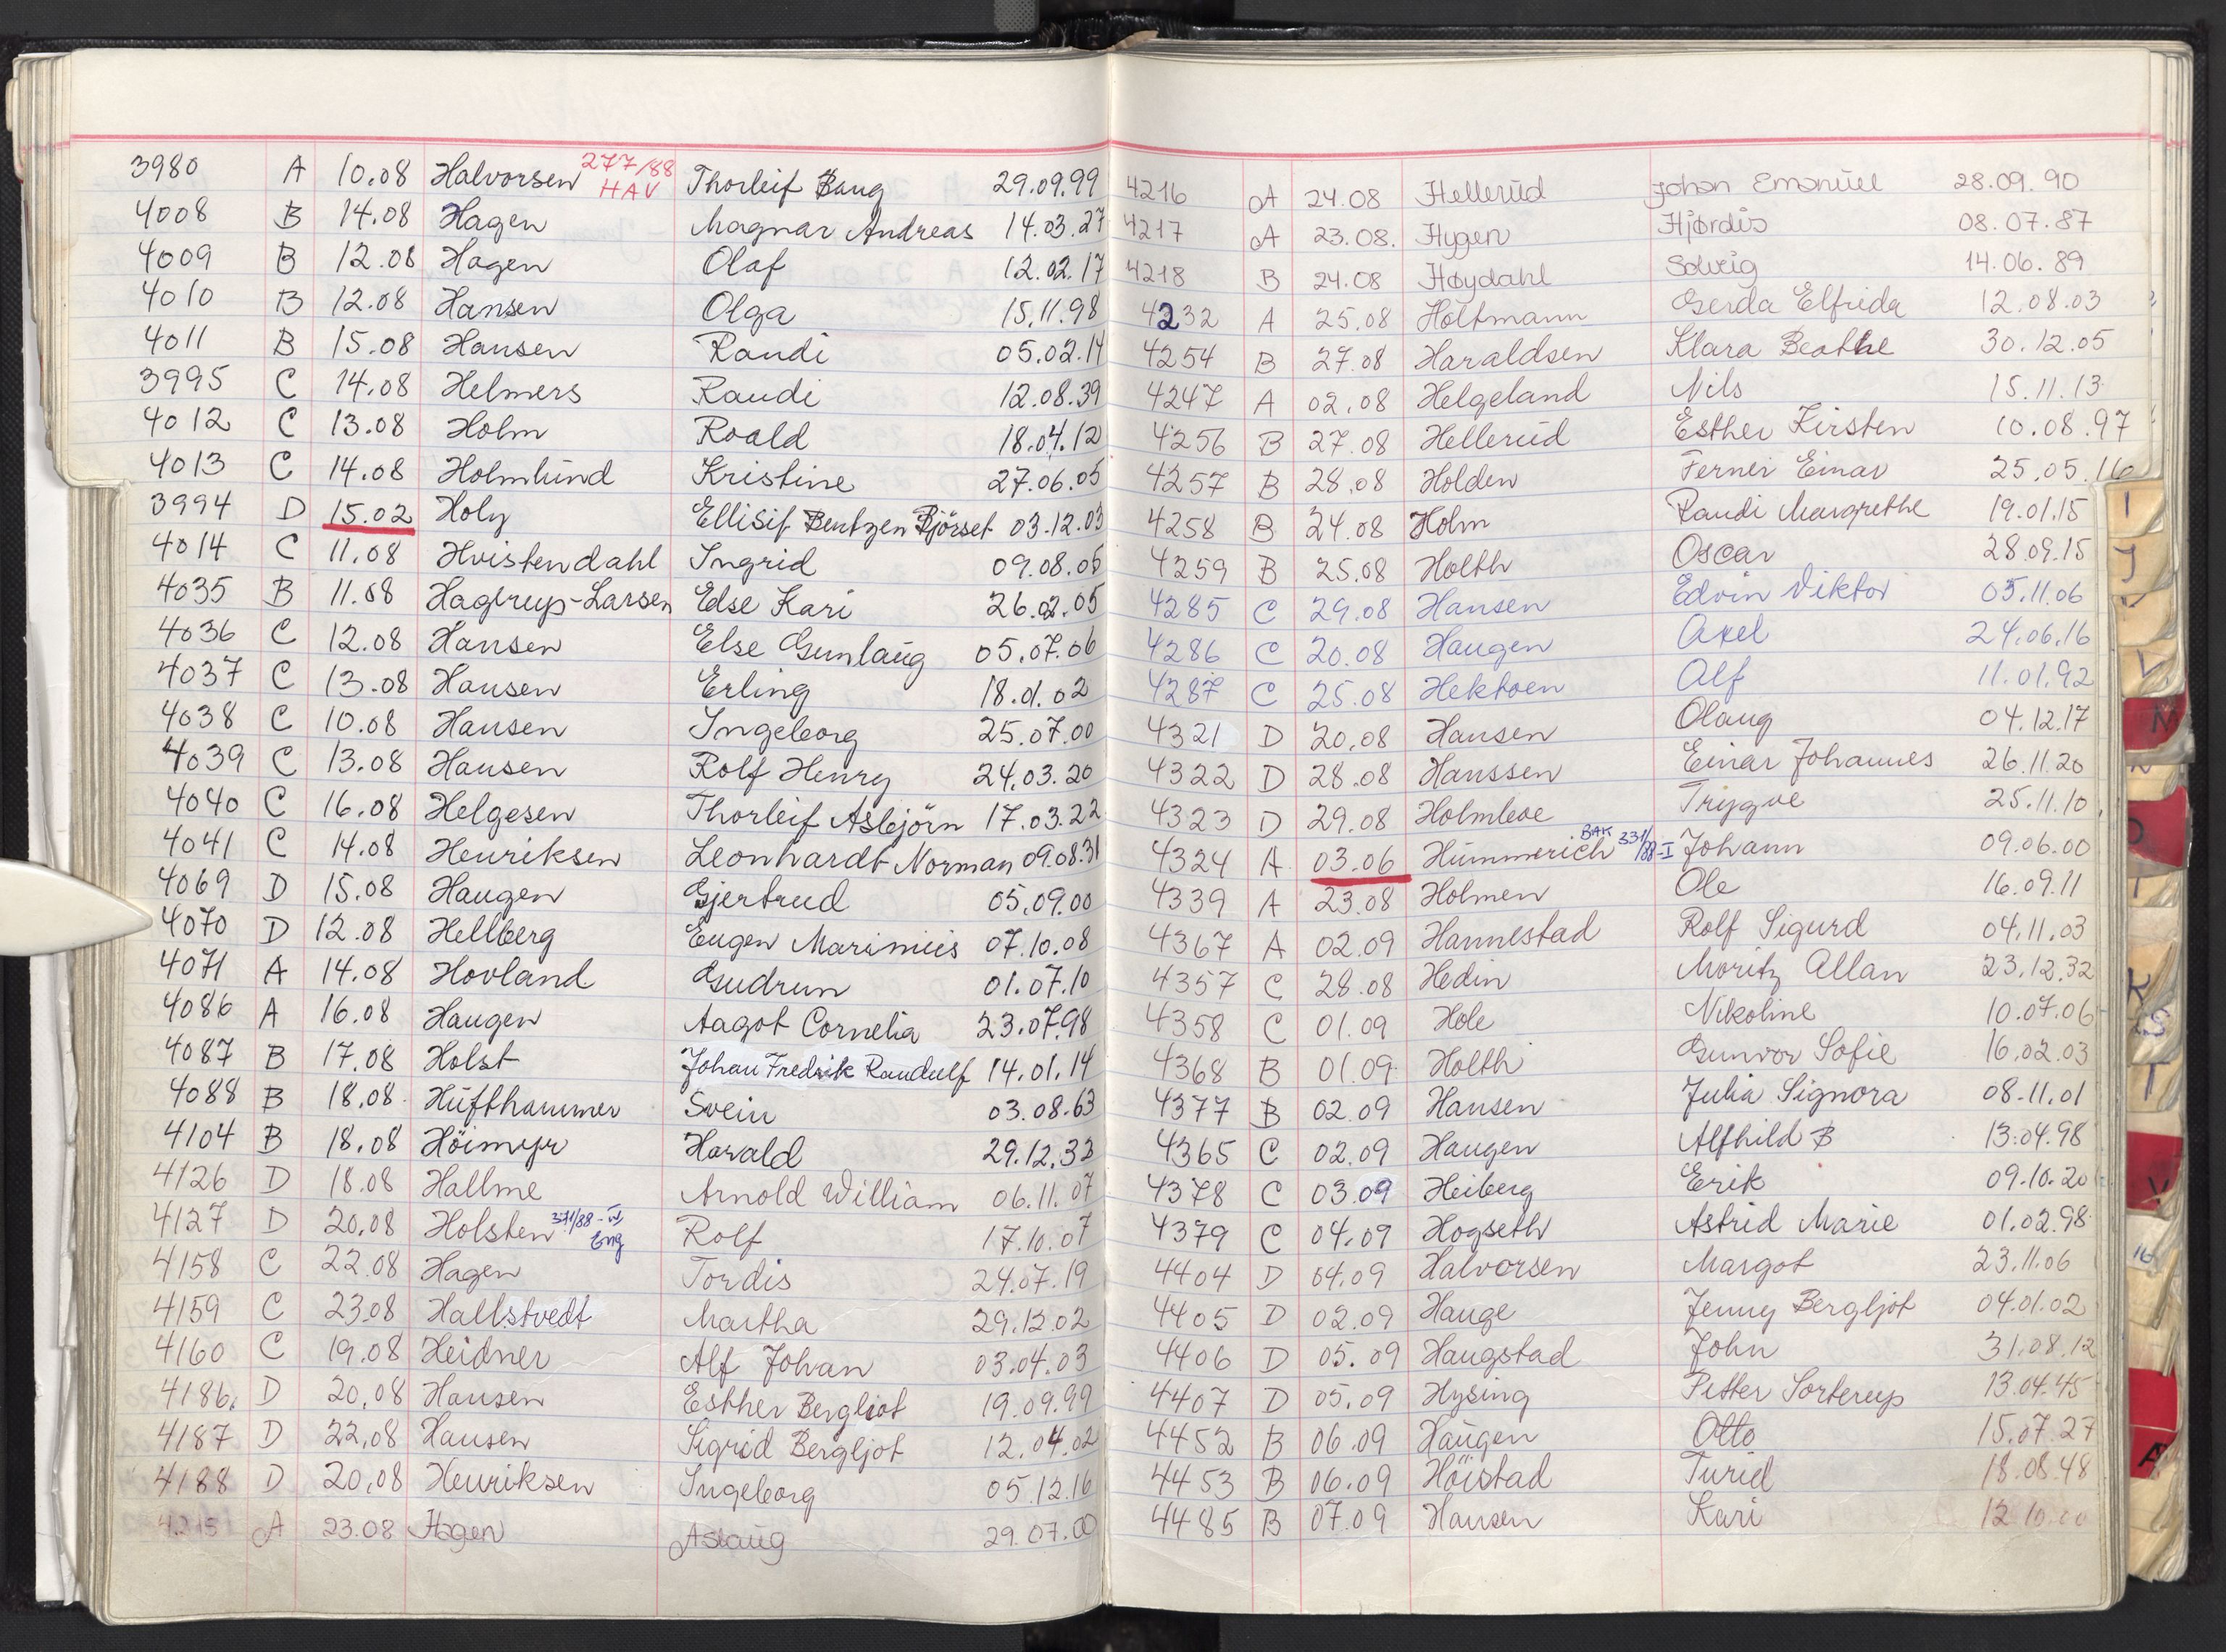 3980 A 10.08 Halvorsen 277/88 HAV Thorleif Bang 29.09.99
4008 B 14.08 Hagen Magnar Andreas 14.03.27
4009 B 12.08 Hagen Olaf 12.02.17
4010 B 12.08 Hansen Olga 15.11.98
4011 B 15.08 Hansen Randi 05.02.14
3995 C 14.08 Helmers Randi 12.08.39
4012 C 13.08 Holm Roald 18.04.12
4013 C 14.08 Holmlund Kristine 27.06.05
3994 D 15.02 Holy Ellisif Bentzen Bjørset 03.12.03
4014 C 11.08 Hvistendahl Ingrid 09.08.05
4035 B 11.08 Hagerup-Larsen Edse Kari 26.02.05
4036 C 12.08 Hansen Else Gunlaug 05.07.06
4037 C 13.08 Hansen Erling 18.01.02
4038 C 10.08 Hansen Ingeborg 25.07.00
4039 C 13.08 Hansen Rolf Henry 24.03.20
4040 C 16.08 Helgesen Thorleif Asbjörn 17.03.22
4041 C 14.08 Henriksen Leonhardt Norman 09.08.31
4069 D 15.08 Haugen Gjertrud 05.09.00
4070 D 12.08 Hellberg Eugen Marinius 07.10.08
4071 A 14.08 Hovland Gudrun 01.07.10
4086 A 16.08 Haugen Aagot Cornelia 23.07.98
4087 B 17.08 Holst Johan Fredrik Randulf 14.01.14
4088 B 18.08 Hufthammer Svein 03.08.63
4104 B 18.08 Höimyr Harald 29.12.33
4126 D 18.08 Hallme Arnold William 06.11.07
4127 D 20.08 Holsten 371/88-IV Eng Rolf 17.10.07
4158 C 22.08 Hagen Tordis 24.07.19
4159 C 23.08 Hallstvedt Martha 29.12.02
4160 C 19.08 Heidner Alf Johan 03.04.03
4186 D 20.08 Hansen Esther Bergliot 19.09.99
4187 D 22.08 Hansen Sigrid Bergljot 12.04.02
4188 D 20.08 Henriksen Ingeborg 05.12.16
4215 A 23.08 Hagen Aslaug 29.07.00
4216 A 24.08 Hellerud Johan Emanuel 28.09.90
4217 A 23.08. Hygen Hjørdis 08.07.87
4218 B 24.08 Høydahl Solveig 14.06.89
4232 A 25.08 Holtmann Gerda Elfrida 12.08.03
4254 B 27.08 Haraldsen Klara Beathe 30.12.05
4247 A 02.08 Helgeland Nils 15.11.13
4256 B 27.08 Hellerud Esther Kirsten 10.08.97
4257 B 28.08 Holden Ferner Einar 25.05.16
4258 B 24.08 Holm Randi Margrethe 19.01.15
4259 B 25.08 Holth Oscar 28.09.15
4285 C 29.08 Hansen Edvin Viktor 05.11.06
4286 C 20.08 Haugen Axel 24.06.16
4287 C 25.08 Hektoen Alf 11.01.92
4321 D 20.08 Hansen Olaug 04.12.17
4322 D 28.08 Hanssen Einar Johannes 26.11.20
4323 D 29.08 Holmboe Trygve 25.11.10
4324 A 03.06 Hummerich BAK 331/88-I Johann 09.06.00
4339 A 23.08 Holmen Ole 16.09.11
4367 A 02.09 Hannestad Rolf Sigurd 04.11.03
4357 C 28.08 Hedin Moritz Allan 23.12.32
4358 C 01.09 Hole Nikoline 10.07.06
4368 B 01.09 Holth Gunvor Sofie 16.02.03
4377 B 02.09 Hansen Julia Signora 08.11.01
4365 C 02.09 Haugen Alfhild B 13.04.98
4378 C 03.09 Heiberg Erik 09.10.20
4379 C 04.09 Hogseth Astrid Marie 01.02.98
4404 D 04.09 Halvorsen Margot 23.11.06
4405 D 02.09 Hauge Jenny Bergljot 04.01.02
4406 D 05.09 Haugstad John 31.08.12
4407 D 05.09 Hysing Petter Sorterup 13.04.45
4452 B 06.09 Haugen Otto 15.07.27
4453 B 06.09 Höistad Turid 18.08.48
4485 B 07.09 Hansen Kari 12.10.00
I
J
V
M
N
O
K
S
T
V